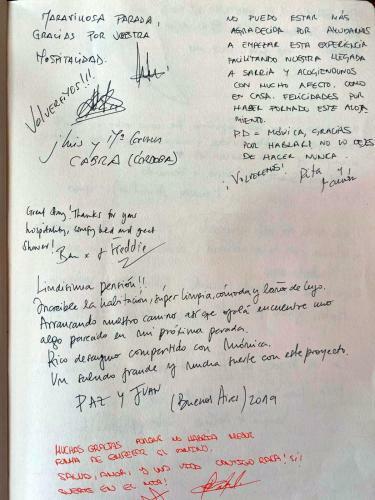 MARAVILLOSA PARADA,
GRACIAS POR VUESTRA
HOSPITALIDAD.
VOLVEREMOS!!!
Luis y Mª Carmen
CABRA (CORDOBA)
NO PUEDO ESTAR MÁS
AGRADECIDA POR AYUDARNOS
A EMPEZAR ESTA EXPERIENCIA
FACILITANDO NUESTRA LLEGADA
A SARRIA Y ACOGIENDONOS
CON MUCHO AFECTO, COMO
EN CASA. FELICIDADES POR
HABER FORMADO ESTE ALOJA
MIENTO.
PD = MÓNICA, GRACIAS
POR HABLAR! NO LO DEJES
DE HACER NUNCA.
¡VOLVEREMOS! Rita y
Great stay! Thanks for your
hospitality, comfy bed and great
shower! Ben x & Freddie
Lindisima pensión!!
Increible la habitacion, súper limpia, cómoda y baño de lujo.
Arrancando nuestro camino así que ojalá encuentre uno
algo parecido en mi próxima parada.
Rico desayuno compartido con Mónica.
Un saludo grande y mucha suerte con este proyecto.
PAZ Y JUAN (Buenos Aires) 2019
MUCHAS GRACIAS PORQUE NO HABRIA MEJOR
FORMA DE EMPEZAR EL CAMINO.
SALUD, AMOR, Y UNA VIDA CONTIGO
SUERTE EN EL